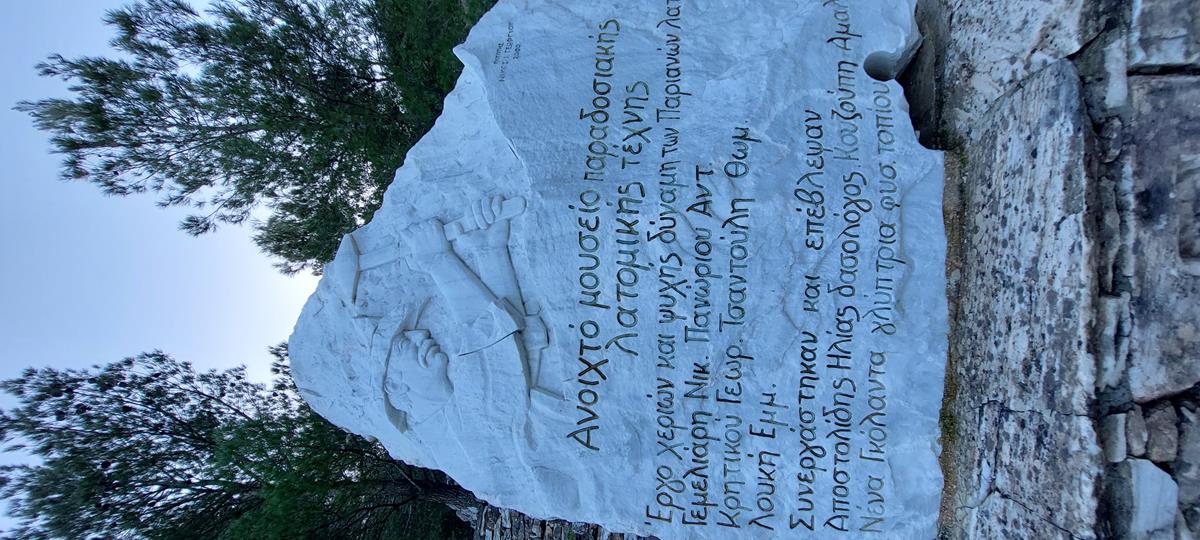 Ανοιχτό μουσείο παραδοσιακής
λατομικής τέχνης
Έργο χεριών και ψυχής δύναμη των Παριανών
Γεμελιάρη Νικ. Πανώριου Αντ.
Κρητικού Γεωρ. Τσαντούλη Θωμ.
Λουκή Εμμ.
Συνεργάστηκαν και επέβλεψαν
Αποστολίδης Ηλίας δασολόγος, Κουζούπη
Νένα Γκολάντα γλύπτρια φυσ. τοπίου